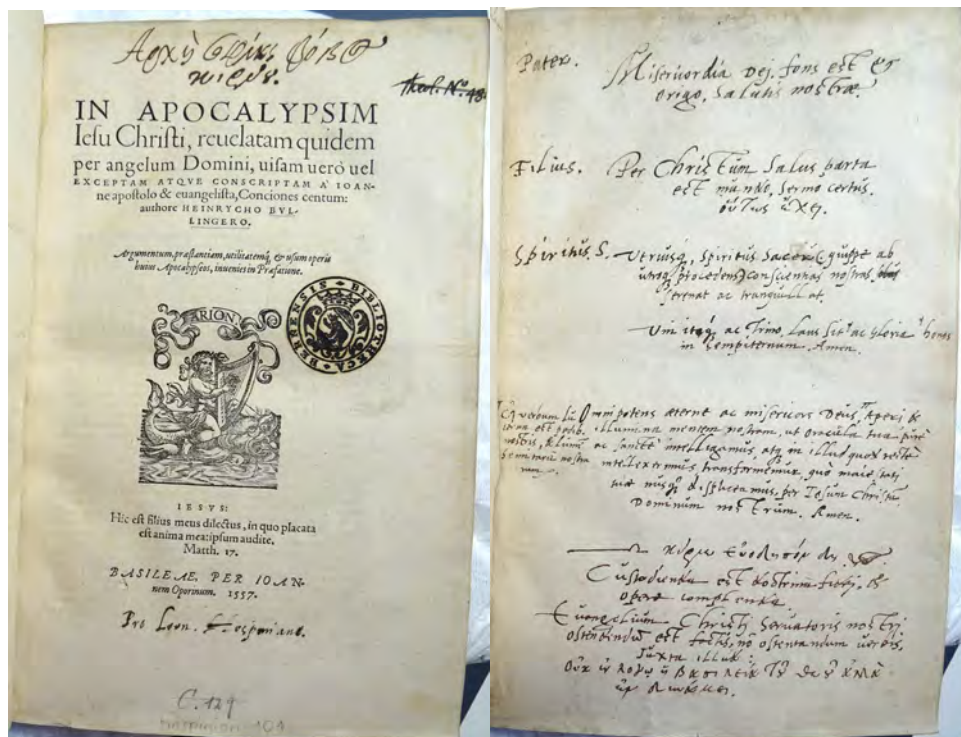 Theol. Nº. 48
IN APOCALYPSIM
Iesu Christi, reuelatam quidem
per angelum Domini, uisam uerò uel
EXCEPTAM ATQVE CONSCRIPTAM A' IOAN-
ne apostolo & euangelista, Conciones centum:
authore HEINRYCHO BVL-
LINGERO.
Argumentum, præstantiam, utilitatemq́; & usum operis
huius Apocalypseos, inuenies in Præfatione.
ARION
BIBLIOTHECA BERNENSIS
IESVS:
Hic est filius meus dilectus, in quo placata
est anima mea: ipsum audite.
Matth. 17.
BASILEAE, PER IOAN-
nem Oporinum. 1557.
Pro Leon.
C. 129
Hospinian 104
Pater. Misericordia Dej. fons est et
origo, Salutis nostræ.
Filius. Per Christum Salus parta
est mundo, Sermo certus.
οὕτως ἔχει
Spiritus. S. Utriusq́, Spiritus Sacer (quippe ab
utroq́ procedens) conscientias nostras
serenat ac tranquillat.
Uni itaq́ ac Trino, Laus sit ac gloria honos
in sempiternum. Amen.
Omnipotens æterne ac misericors Deus, Aperi et
illumina mentem nostram, ut oracula tua purè
ac sanctè intelligamus, atq́ in illud quod rectè
intellexerimus, transformemur, quò maiestati
tuæ nusq̃ displiceamus, per Iesum Christū
Dominum nostrum. Amen.
Custodienda est doctrina fidej, et
opere complenda
Euangelium Christi Servatoris nostrj
ostendendū est factis, nō ostentandum uerbis,
Juxta illud:
Οὐκ ἐν λόγῳ ἡ βασιλεία τοῦ θεοῦ ἀλλὰ
ἐν δυνάμει.